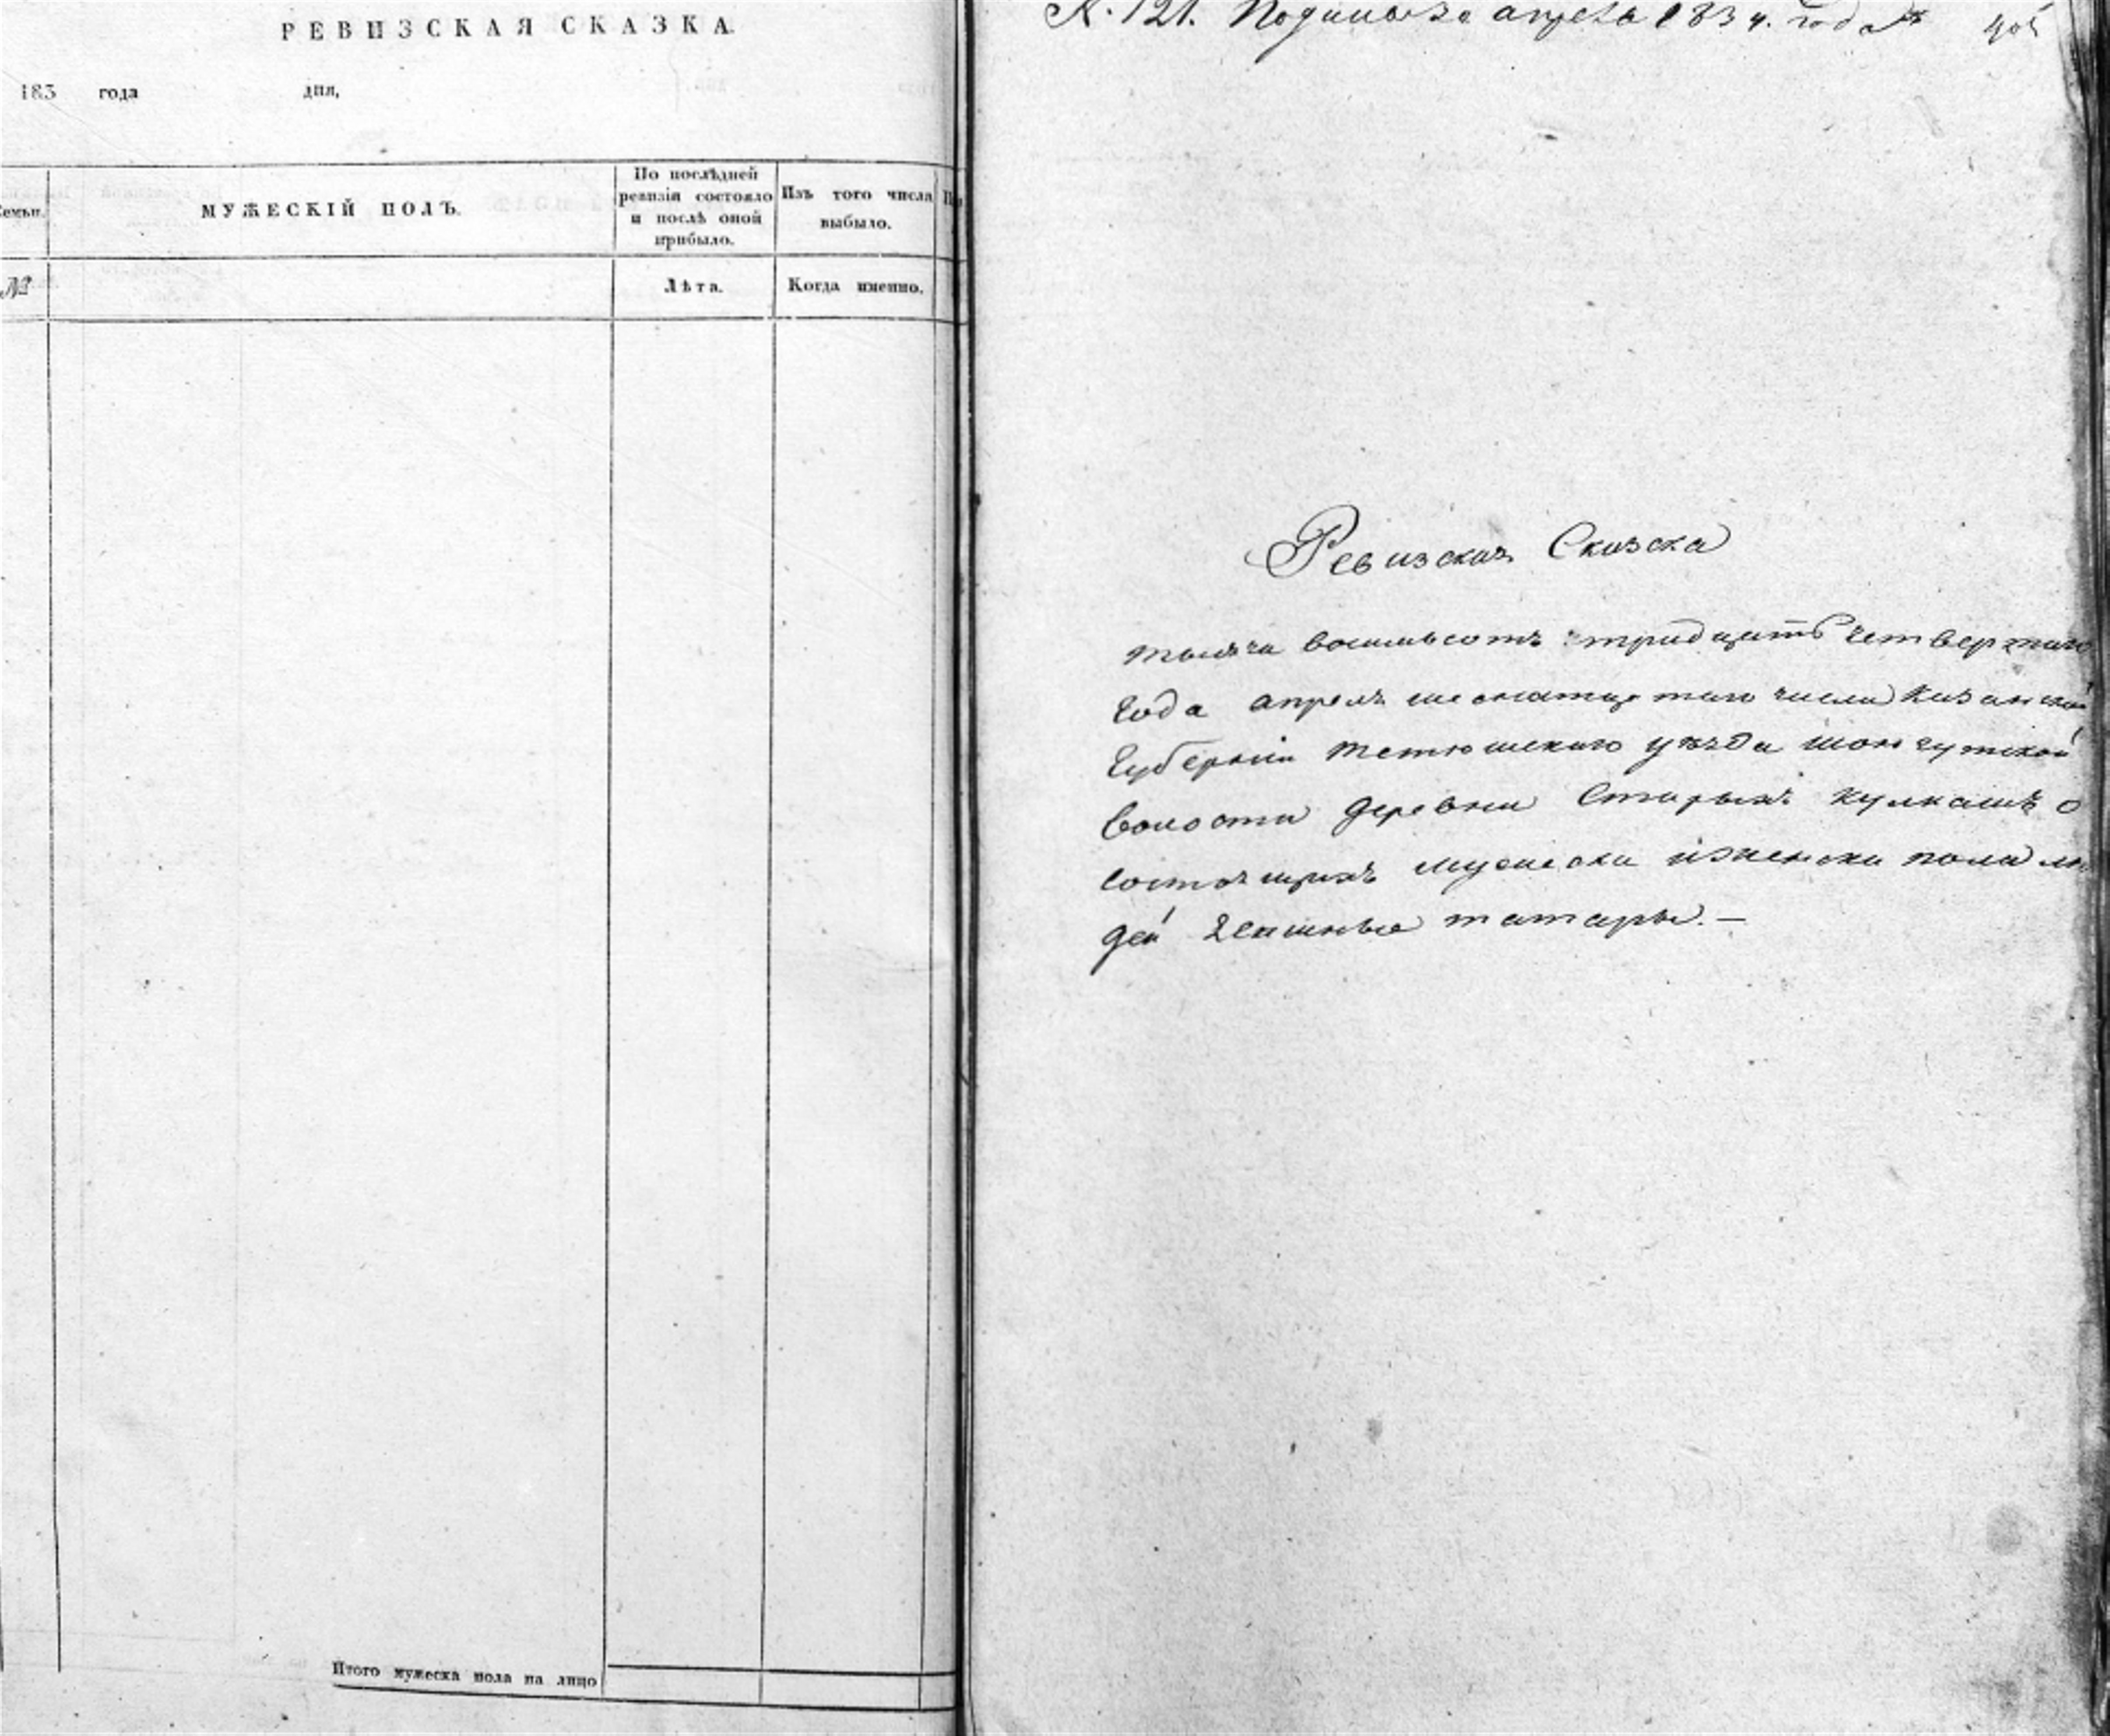 РЕВИЗСКАЯ СКАЗКА.
183 года дня,
Семьи.
МУЖЕСКІЙ ПОЛЪ.
По послѣдней
ревизіи состояло
и послѣ оной
прибыло.
Изъ того числа
выбыло.
№
Лѣта.
Когда именно.
Итого мужеска пола на лицо
№. 121. апреля 1834. года
Ревизская Сказска
тысяча восемьсотъ тридцать четвертаго
Года апреля месяца числа Казанской
Губерніи тетюшскаго уѣзда шонгутской
волости деревни Старыхъ кулкашъ о
состоящихъ мужеска иженска пола лю
дей татары. —